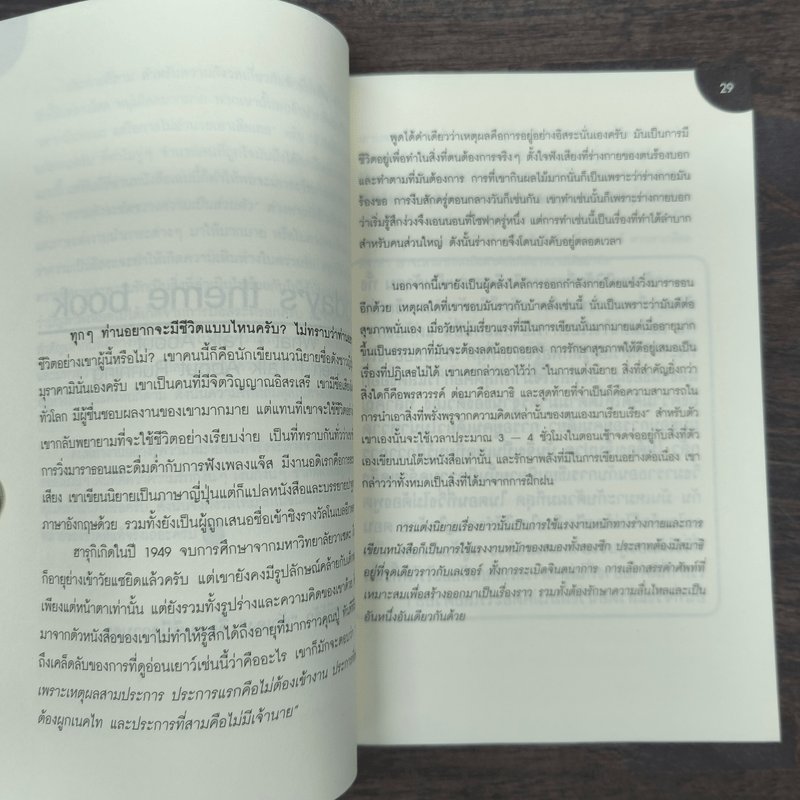 ทุกๆ ท่านอยากจะมีชีวิตแบบไหนครับ? ไม่ทราบว่าท่าน
ชีวิตอย่างเขาผู้นี้หรือไม่? เขาคนนี้ก็คือนักเขียนนวนิยายชื่อดังชาว
มุราคามินั่นเองครับ เขาเป็นคนที่มีจิตวิญญาณอิสรเสรี เขามีชื่อเสียง
ทั่วโลก มีผู้ชื่นชอบผลงานของเขามากมาย แต่แทนที่เขาจะใช้ชีวิต
เขากลับพยายามที่จะใช้ชีวิตอย่างเรียบง่าย เป็นที่ทราบกันทั่วว่า
การวิ่งมาราธอนและดื่มด่ำกับการฟังเพลงแจ๊ส มีงานอดิเรกคือการ
เสียง เขาเขียนนิยายเป็นภาษาญี่ปุ่นแต่ก็แปลหนังสือและบรรยาย
ภาษาอังกฤษด้วย รวมทั้งยังเป็นผู้ถูกเสนอชื่อเข้าชิงรางวัลโนเบล
ฮารุกิเกิดในปี 1949 จบการศึกษาจากมหาวิทยาลัยวาเซดะ
ก็อายุย่างเข้าวัยแซยิดแล้วครับ แต่เขายังคงมีรูปลักษณ์คล้ายกับ
เพียงแต่หน้าตาเท่านั้น แต่ยังรวมทั้งรูปร่างและความคิดของเขาด้วย
มาจากตัวหนังสือของเขาไม่ทำให้รู้สึกได้ถึงอายุที่มากราวคุณปู่
ถึงเคล็ดลับของการที่ดูอ่อนเยาว์เช่นนี้ว่าคืออะไร เขาก็มักจะตอบว่า
เพราะเหตุผลสามประการ ประการแรกคือไม่ต้องเข้างาน
ต้องผูกเนคไท และประการที่สามคือไม่มีเจ้านาย"
29
พูดได้คำเดียวว่าเหตุผลคือการอยู่อย่างอิสระนั่นเองครับ มันเป็นการมี
ชีวิตอยู่เพื่อทำในสิ่งที่ตนต้องการจริงๆ ตั้งใจฟังเสียงที่ร่างกายของตนร้องบอก
และทำตามที่มันต้องการ การที่เขากินผลไม้มากนั่นก็เป็นเพราะว่าร่างกายมัน
ร้องขอ การงีบสักครู่ตอนกลางวันก็เช่นกัน เขาทำเช่นนั้นก็เพราะร่างกายบอก
ว่าเริ่มรู้สึกง่วงจึงเอนนอนที่โซฟาครู่หนึ่ง แต่การทำเช่นนี้เป็นเรื่องที่ทำได้ลำบาก
สำหรับคนส่วนใหญ่ ดังนั้นร่างกายจึงโดนบังคับอยู่ตลอดเวลา
นอกจากนี้เขายังเป็นผู้คลั่งไคล้การออกกำลังกายโดยแข่งวิ่งมาราธอน
อีกด้วย เหตุผลใดที่เขาชอบมันราวกับบ้าคลั่งเช่นนี้ นั่นเป็นเพราะว่ามันดีต่อ
สุขภาพนั่นเอง เมื่อวัยหนุ่มเรี่ยวแรงที่มีในการเขียนนั้นมากมายแต่เมื่ออายุมาก
ขึ้นเป็นธรรมดาที่มันจะต้องลดน้อยถอยลง การรักษาสุขภาพให้ดีอยู่เสมอเป็น
เรื่องที่ปฏิเสธไม่ได้ เขาเคยกล่าวเอาไว้ว่า "ในการแต่งนิยาย สิ่งที่สำคัญยิ่งกว่า
สิ่งใดก็คือพรสวรรค์ ต่อมาคือสมาธิ และสุดท้ายที่จำเป็นก็คือความสามารถใน
การนำเอาสิ่งที่พรั่งพรูจากความคิดเหล่านั้นของตนเองมาเรียบเรียง" สำหรับตัว
เขาเองนั้นจะใช้เวลาประมาณ 3 – 4 ชั่วโมงในตอนเช้าจดจ่ออยู่กับสิ่งที่ตัว
เองเขียนบนโต๊ะหนังสือเท่านั้น และรักษาพลังที่มีในการเขียนอย่างต่อเนื่อง เขา
กล่าวว่าทั้งหมดเป็นสิ่งที่ได้มาจากการฝึกฝน
การแต่งนิยายเรื่องยาวนั้นเป็นการใช้แรงงานหนักทางร่างกายและการ
เขียนหนังสือก็เป็นการใช้แรงงานหนักของสมองทั้งสองซีก ประสาทต้องมีสมาธิ
อยู่ที่จุดเดียวราวกับเลเซอร์ ทั้งการระเบิดจินตนาการ การเลือกสรรคำศัพท์ที่
เหมาะสมเพื่อสร้างออกมาเป็นเรื่องราว รวมทั้งต้องรักษาความลื่นไหลและเป็น
อันหนึ่งอันเดียวกันด้วย